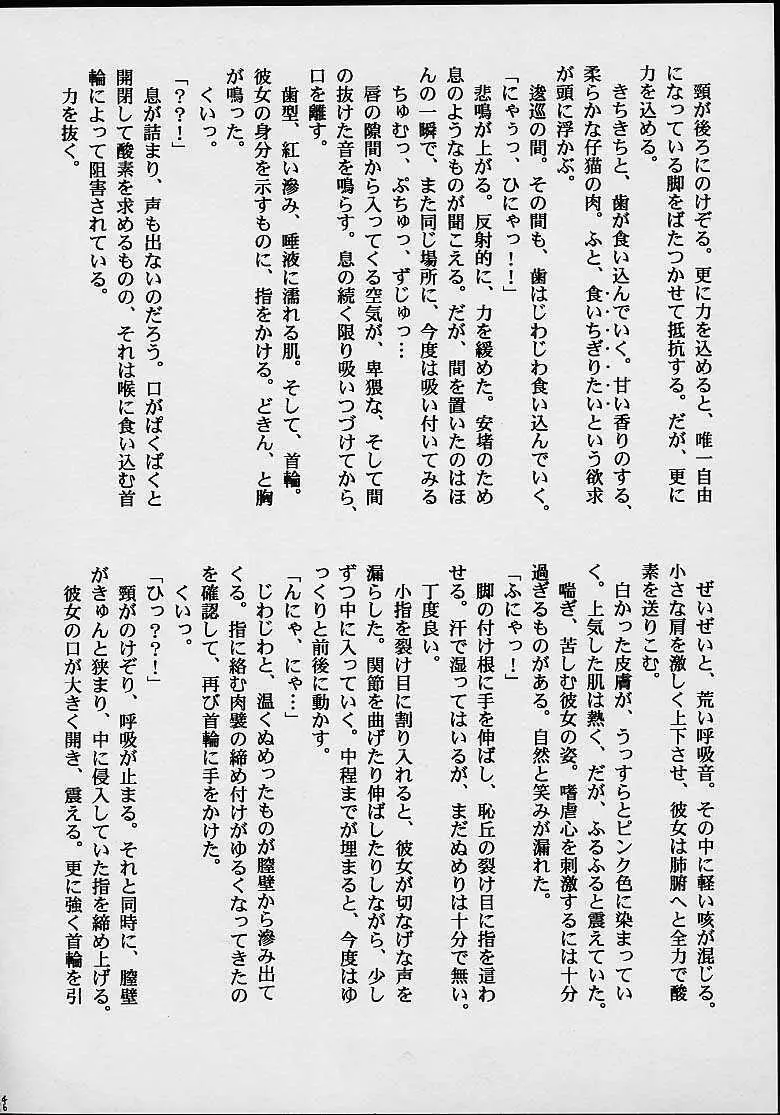 頸が後ろにのけぞる。更に力を込めると、唯一自由
になっている脚をばたつかせて抵抗する。だが、更に
力を込める。
きちきちと、歯が食い込んでいく。甘い香りのする、
柔らかな仔猫の肉。ふと、食いちぎりたいという欲求
が頭に浮かぶ。
逡巡の間。その間も、歯はじわじわ食い込んでいく。
「にゃぅっ、ひにゃっ！！」
悲鳴が上がる。反射的に、力を緩めた。安堵のため
息のようなものが聞こえる。だが、間を置いたのはほ
んの一瞬で、また同じ場所に、今度は吸い付いてみる
ちゅむっ、ぷちゅっ、ずじゅっ…
唇の隙間から入ってくる空気が、卑猥な、そして間
の抜けた音を鳴らす。息の続く限り吸いつづけてから、
口を離す。
歯型、紅い滲み、唾液に濡れる肌。そして、首輪。
彼女の身分を示すものに、指をかける。どきん、と胸
が鳴った。
くいっ。
「？？！」
息が詰まり、声も出ないのだろう。口がぱくぱくと
開閉して酸素を求めるものの、それは喉に食い込む首
輪によって阻害されている。
力を抜く。
ぜいぜいと、荒い呼吸音。その中に軽い咳が混じる。
小さな肩を激しく上下させ、彼女は肺腑へと全力で酸
素を送りこむ。
白かった皮膚が、うっすらとピンク色に染まってい
く。上気した肌は熱く、だが、ふるふると震えていた。
喘ぎ、苦しむ彼女の姿。嗜虐心を刺激するには十分
過ぎるものがある。自然と笑みが漏れた。
「ふにゃっ！」
脚の付け根に手を伸ばし、恥丘の裂け目に指を這わ
せる。汗で湿ってはいるが、まだぬめりは十分で無い。
丁度良い。
小指を裂け目に割り入れると、彼女が切なげな声を
漏らした。関節を曲げたり伸ばしたりしながら、少し
ずつ中に入っていく。中程までが埋まると、今度はゆ
っくりと前後に動かす。
「んにゃ、にゃ…」
じわじわと、温くぬめったものが膣壁から滲み出て
くる。指に絡む肉襞の締め付けがゆるくなってきたの
を確認して、再び首輪に手をかけた。
くいっ。
「ひっ？？！」
頸がのけぞり、呼吸が止まる。それと同時に、膣壁
がきゅんと狭まり、中に侵入していた指を締め上げる。
彼女の口が大きく開き、震える。更に強く首輪を引
46